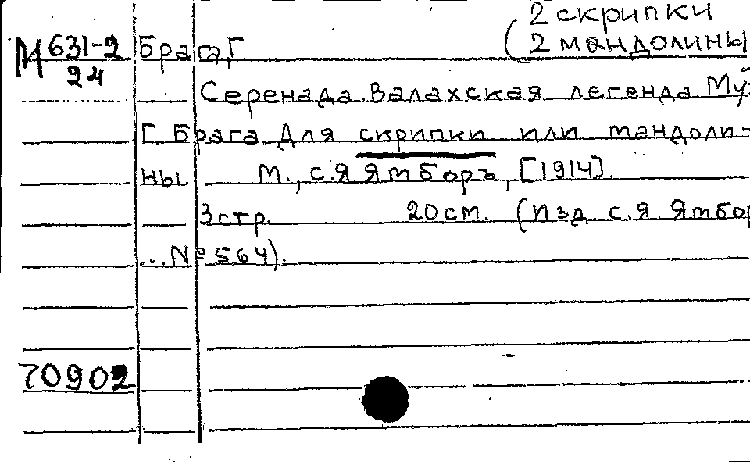 2 скрипки
М 631-2 Брага, Г (2 мандолины
24
Серенада. Валахская легенда Му
Г. Брага Для скрипки или мандоли-
ны М., С.Я Ямборъ, [1914].
3 стр. 20 см. (Изд С.Я Ямбор
...№ 564).
70902